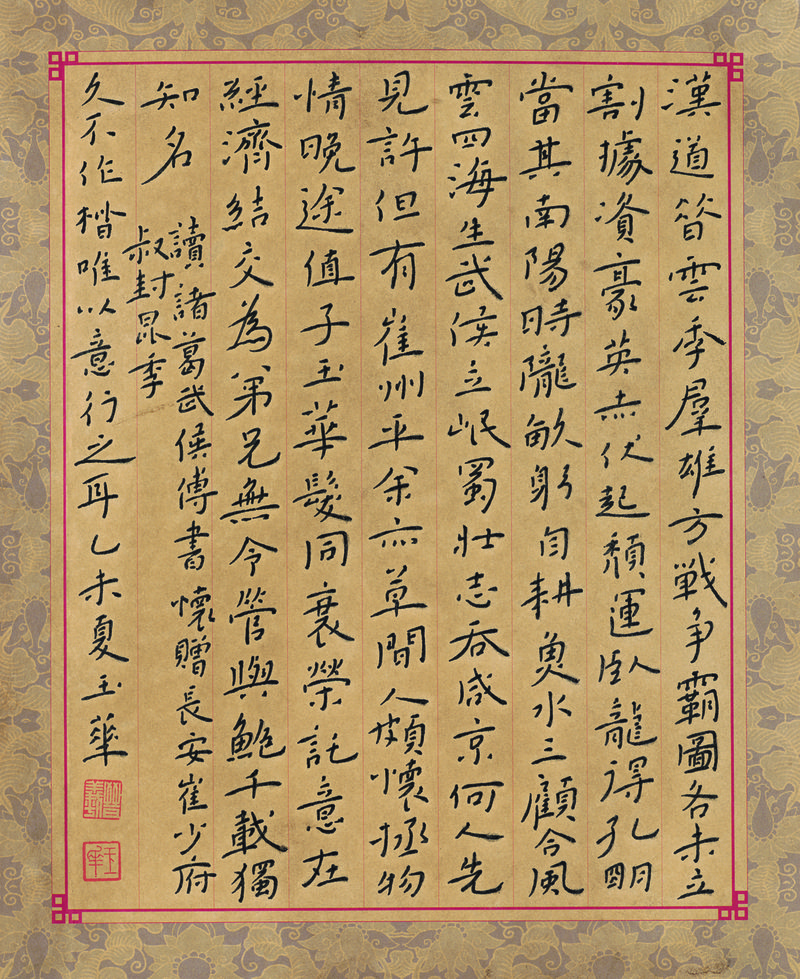 漢道昔雲季羣雄方戦争霸圖各未立
割據資豪英赤伏起頽運臥龍得孔明
當其南陽時隴畝躬自耕魚水三顧合風
雲四海生武侯立岷蜀壯志吞咸京何人先
見許但有崔州平余亦草間人頗懷拯物
情晚途值子玉華髮同衰榮託意在
經濟結交為弟兄無令管與鮑千載獨
知名
讀諸葛武侯傳書懷贈長安崔少府
叔封昆季
久不作楷唯以意行之耳乙未夏玉華